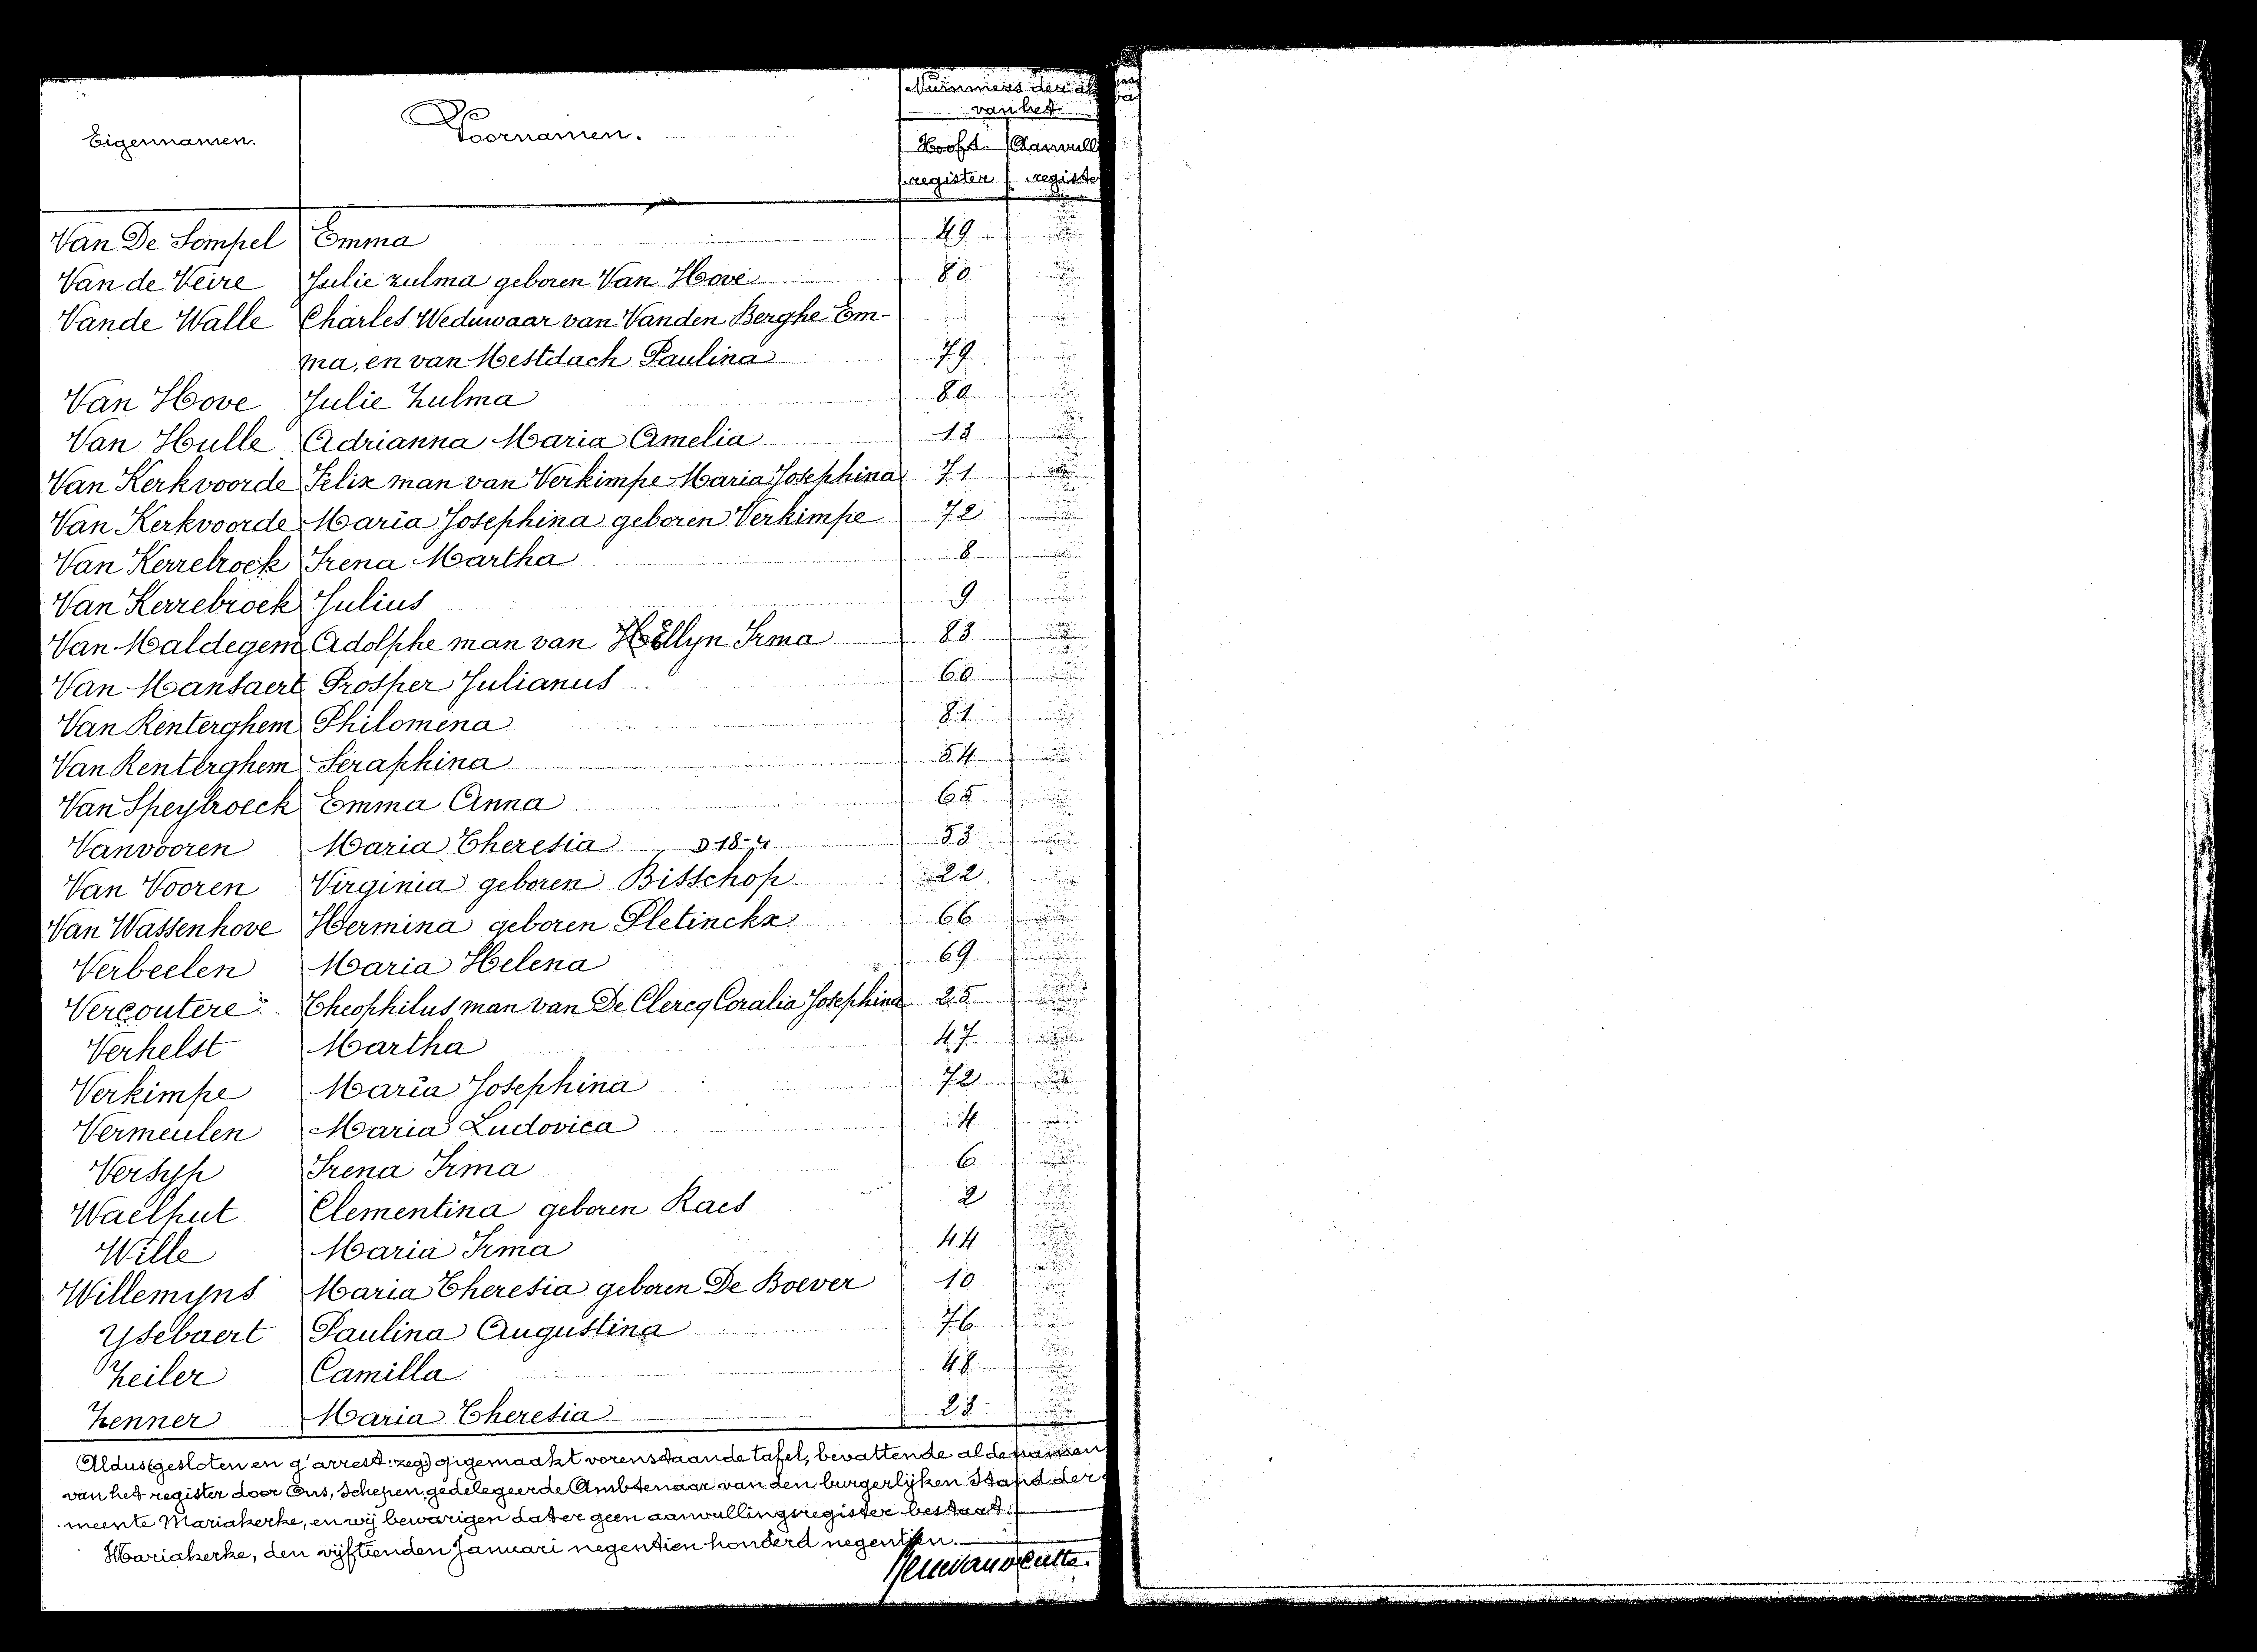 Nummers der
van het
Eigennamen. Voornamen. Hoofd- Aanvull
register registe
Van De Sompel Emma 49
Van de Veire Julie Zulma geboren Van Hove 80
Vande Walle Charles Weduwaar van Vanden Berghe Em-
ma, en van Mestdach Paulina 79
Van Hove Julie Zulma 80
Van Hulle Adrianna Maria Amelia 13
Van Kerkvoorde Felix man van Verkimpe Maria Josephina 71
Van Kerkvoorde Maria Josephina geboren Verkimpe 72
Van Kerrebroek Irena Martha 8
Van Kerrebroek Julius 9
Van Maldegem Adolphe man van Hollyn Irma 83
Van Mansaert Prosper Julianus 60
Van Renterghem Philomena 81
Van Renterghem Seraphina 54
Van Speybroeck Emma Anna 65
Vanvooren Maria Theresia 53
Van Vooren Virginia geboren Bisschop 22
Van Wassenhove Hermina geboren Pletinckx 66
Verbeelen Maria Helena 69
Vercoutere Theophilus man van De Clercq Coralia Josephina 25
Verhelst Martha 47
Verkimpe Maria Josephina 72
Vermeulen Maria Ludovica 4
Versyp Irena Irma 6
Waelput Clementina geboren Raes 2
Wille Maria Irma 44
Willemyns Maria Theresia geboren De Boever 10
Ysebaert Paulina Augustina 76
Zeiler Camilla 48
Zenner Maria Theresia 23
Aldus gesloten en g'arrest: zeg) opgemaakt vorenstaande tafel, bevattende al de namen
van het register door Ons, Schepen, gedelegeerde Ambtenaar van den burgerlijken Stand der
meente Mariakerke, en wij bevestigen dat er geen aanvullingsregister bestaat.
Mariakerke, den vijftienden Januari negentien honderd negentien.